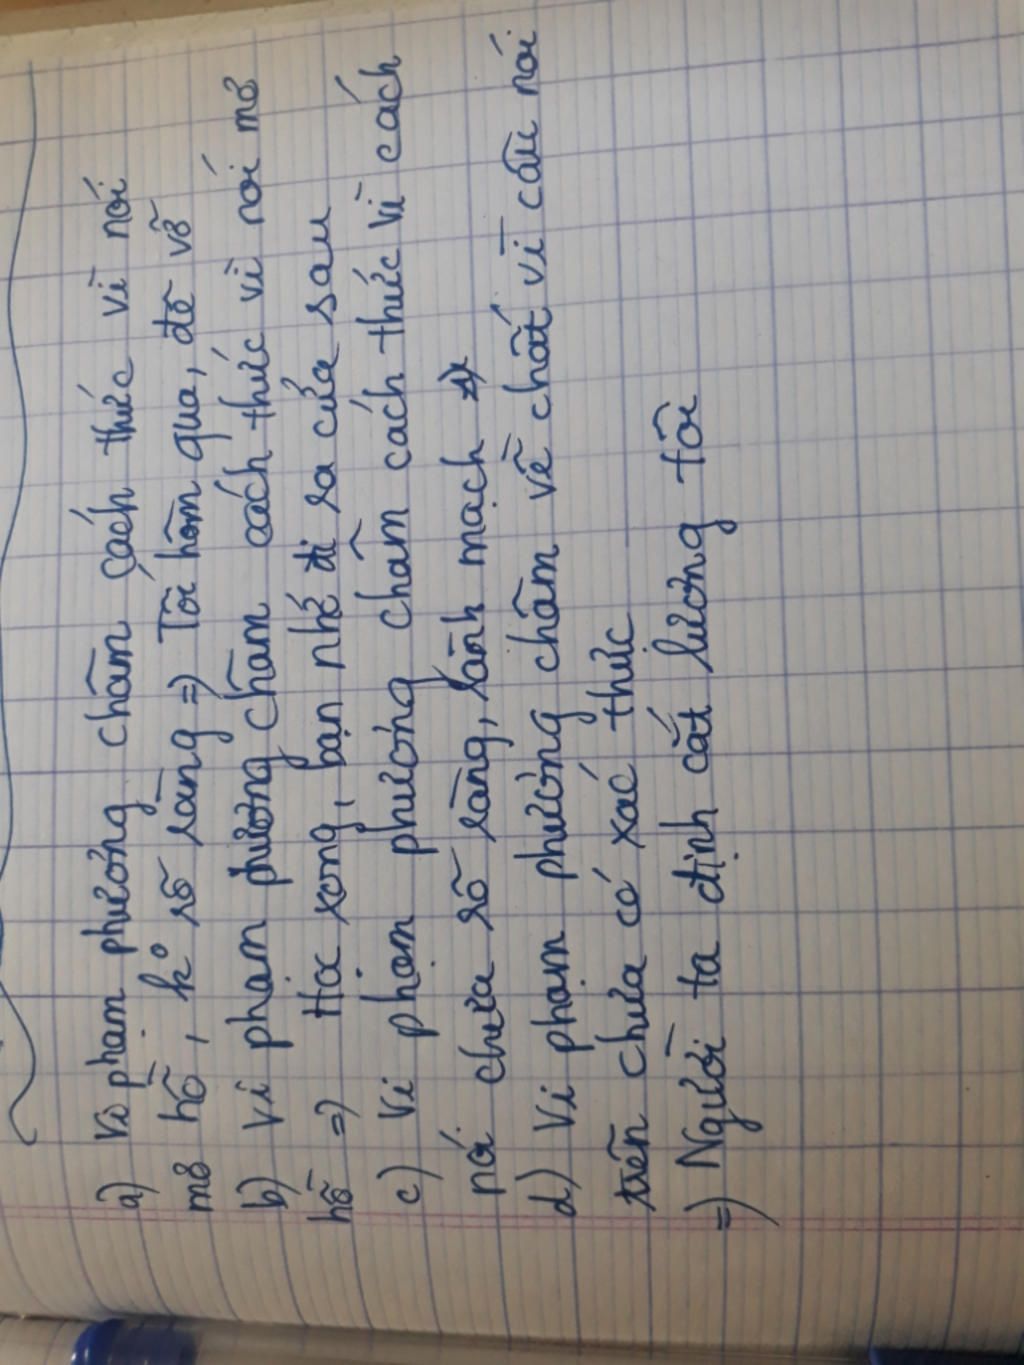 a) Vi phạm phương châm cách thức vì nói
mơ hồ, ko rõ ràng => Tối hôm qua, đê vỡ
b) Vi phạm phương châm cách thức vì nói mơ
hồ => Hx xong, bạn nhớ đi ra cửa sau
c) Vi phạm phương châm cách thức vì cách
nói chưa rõ ràng, rành mạch
d) Vi phạm phương châm về chất vì câu nói
trên chưa có xác thực
=) Người ta định cắt lương tôi